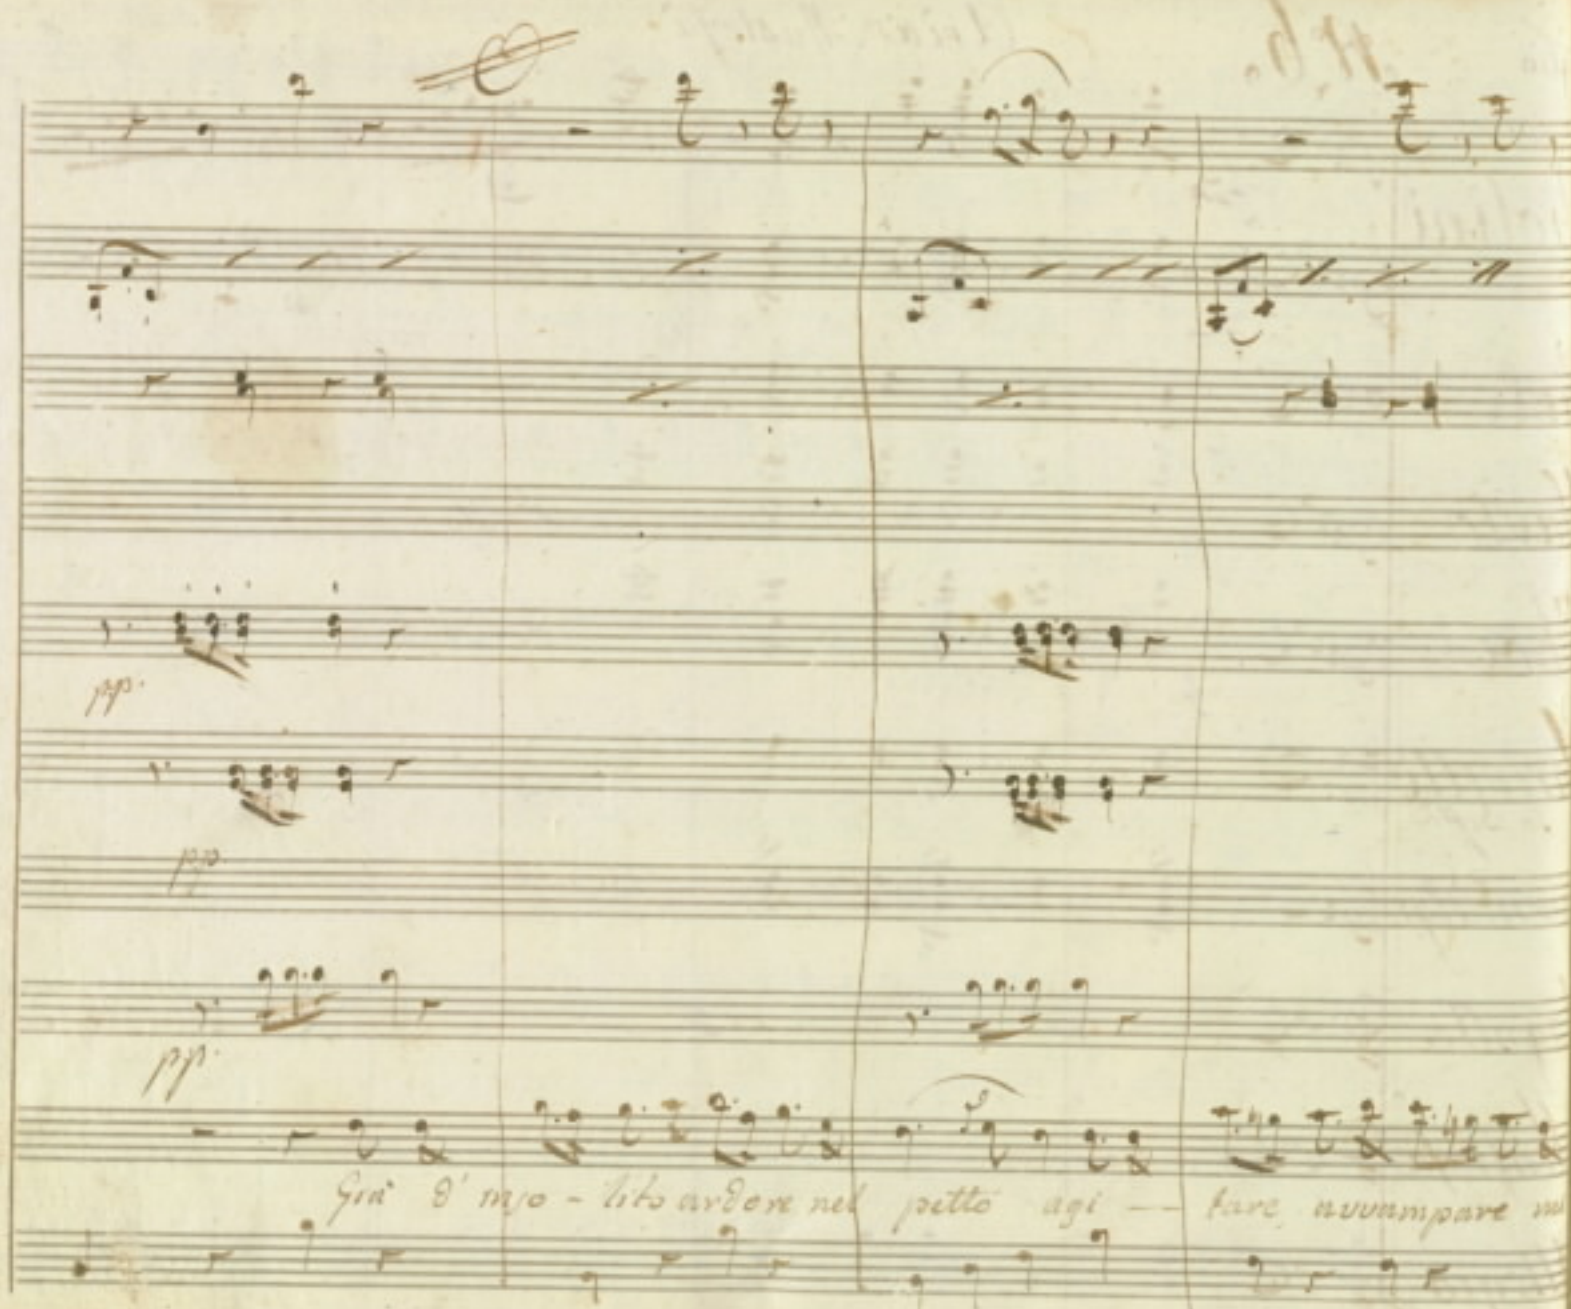 pp.
pp.
pp.
Già d'inso - lito ardore nel petto agi -- tare, avvampare